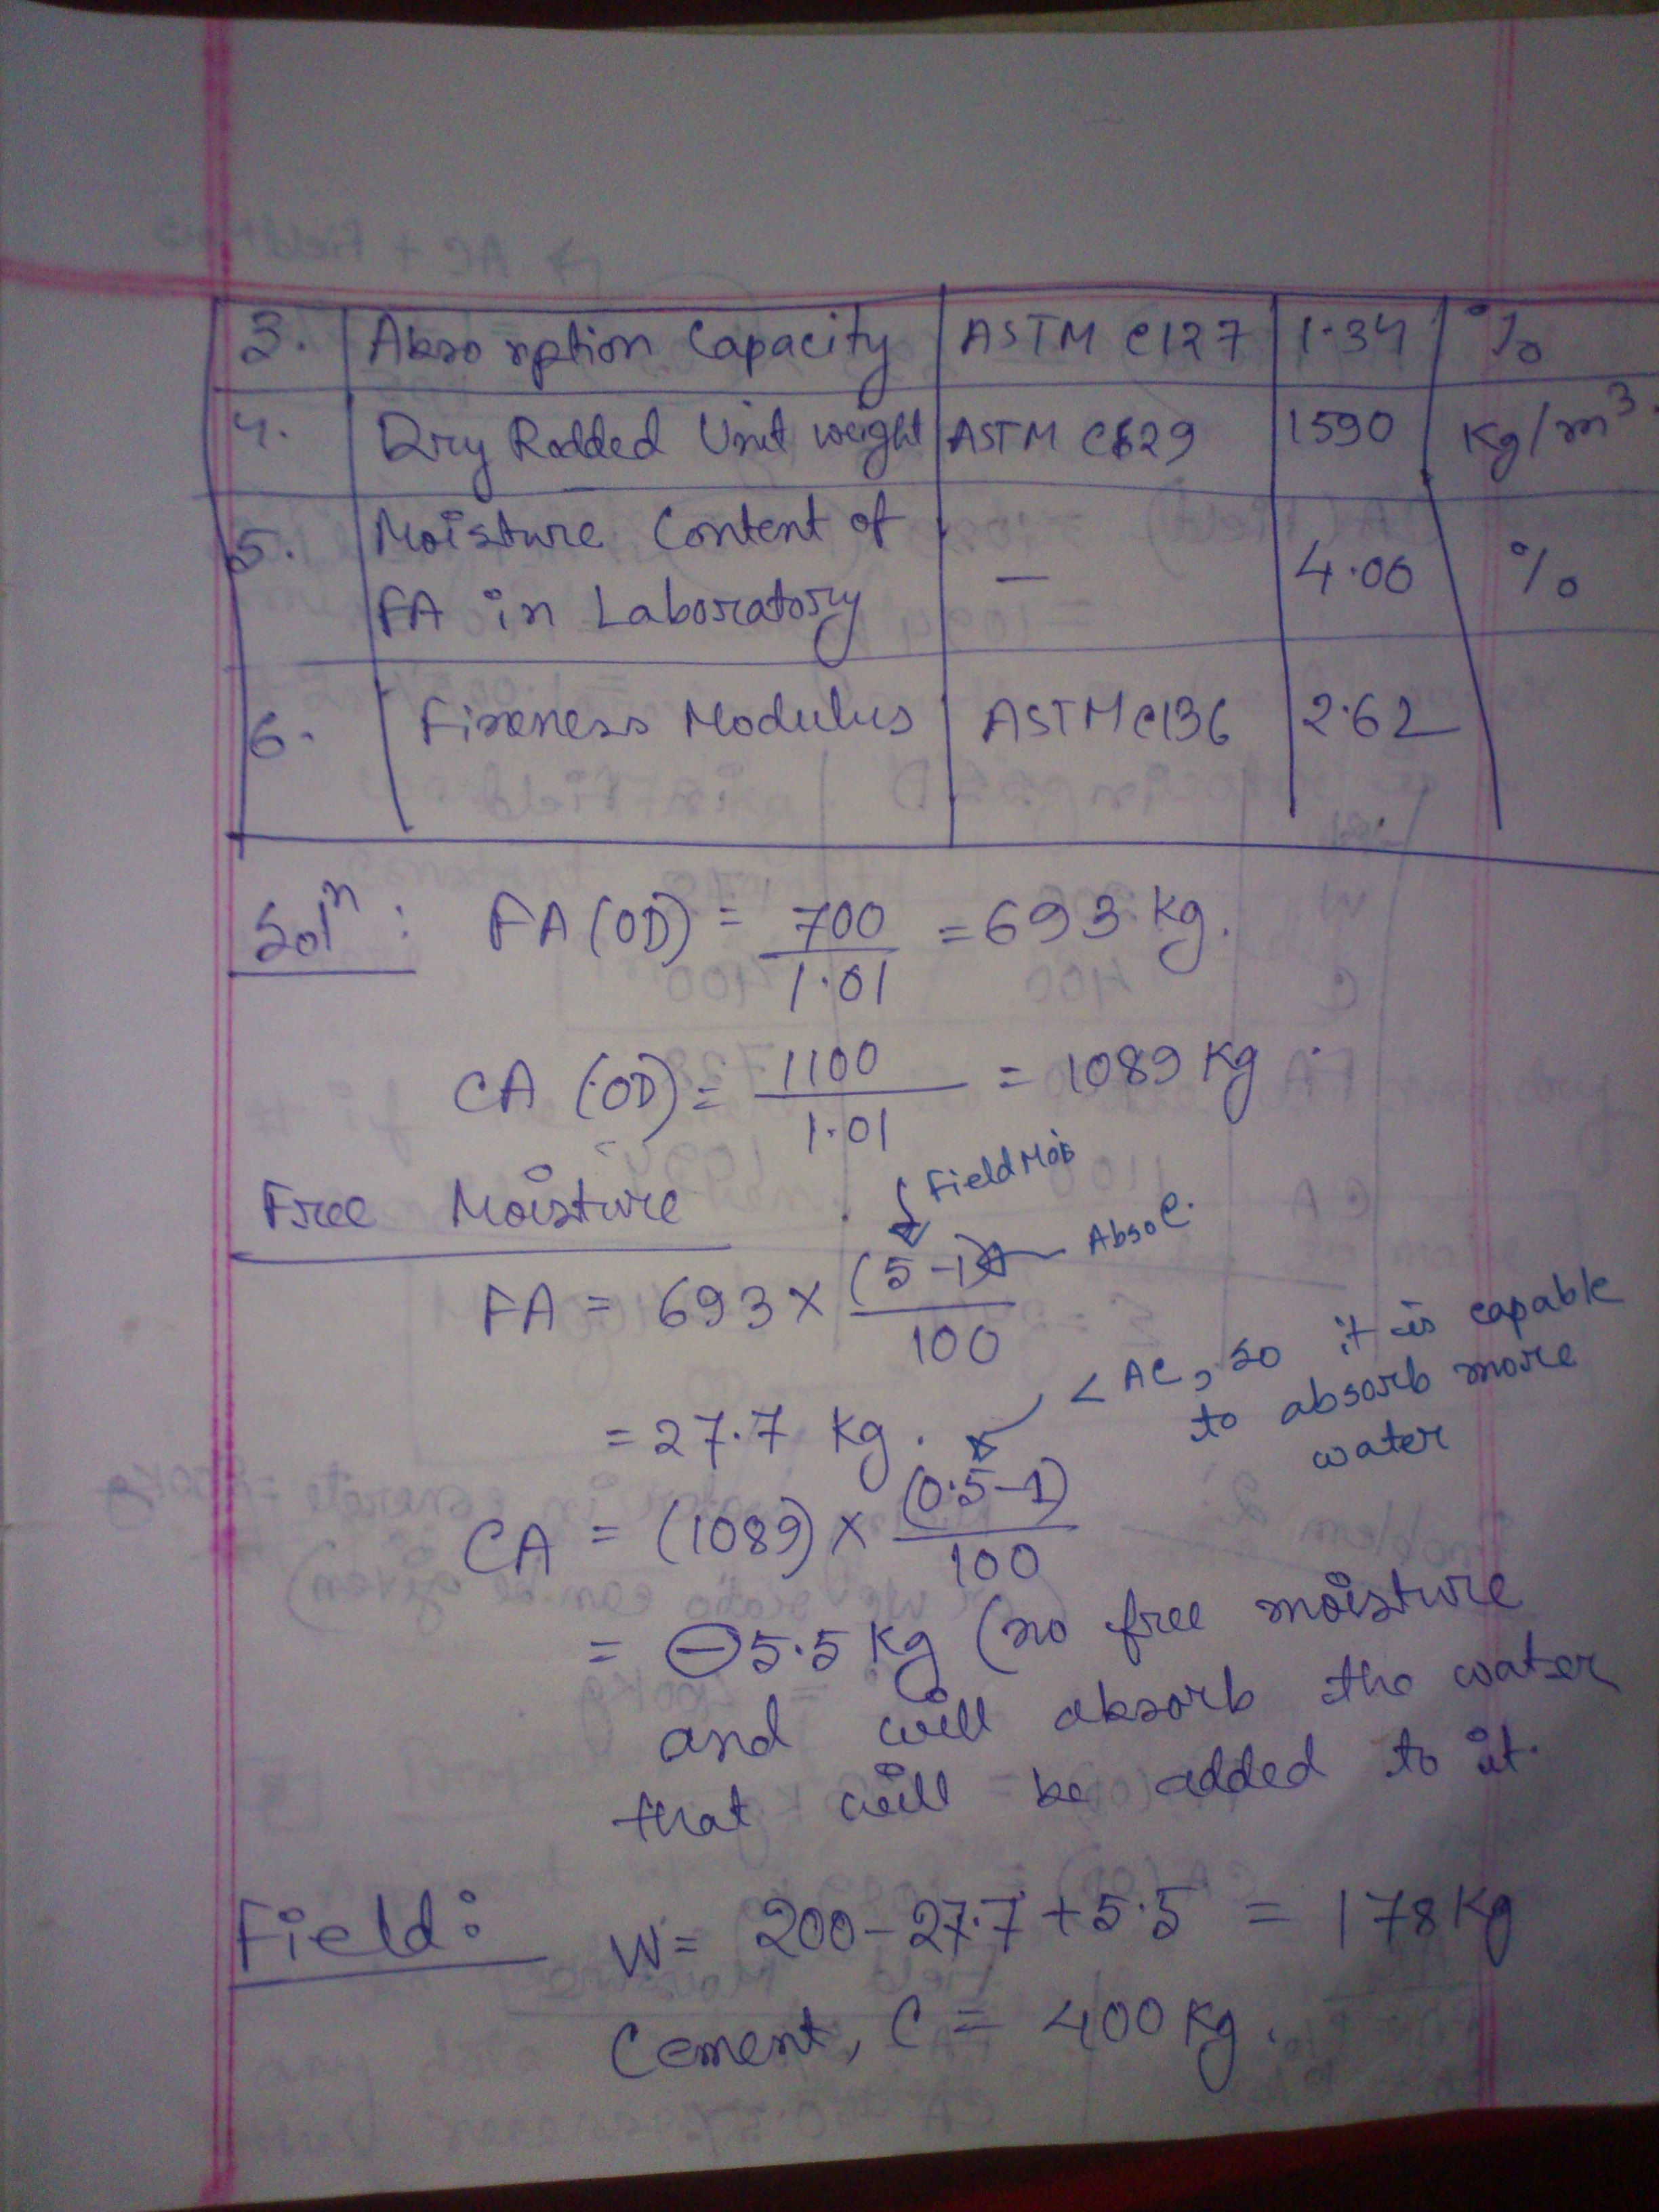 3. Absorption Capacity ASTM C127 1.34 %
4. Dry Rodded Unit weight ASTM C29 1590 Kg/m³
5. Moisture Content of FA in Laboratory — 4.06 %
6. Fineness Modulus ASTM C136 2.62
Solⁿ: FA (OD) = 700/1.01 = 693 kg.
CA (OD) = 1100/1.01 = 1089 Kg
Free Moisture
Field Mois
Abso C.
FA = 693 × (5-1)/100
< AC, so it is capable
to absorb more
water
= 27.7 Kg.
CA = (1089) × (0.5-1)/100
= -5.5 Kg (no free moisture
and will absorb the water
that will be added to it.
Field: W = 200-27.7+5.5 = 178 Kg
Cement, C = 400 Kg.